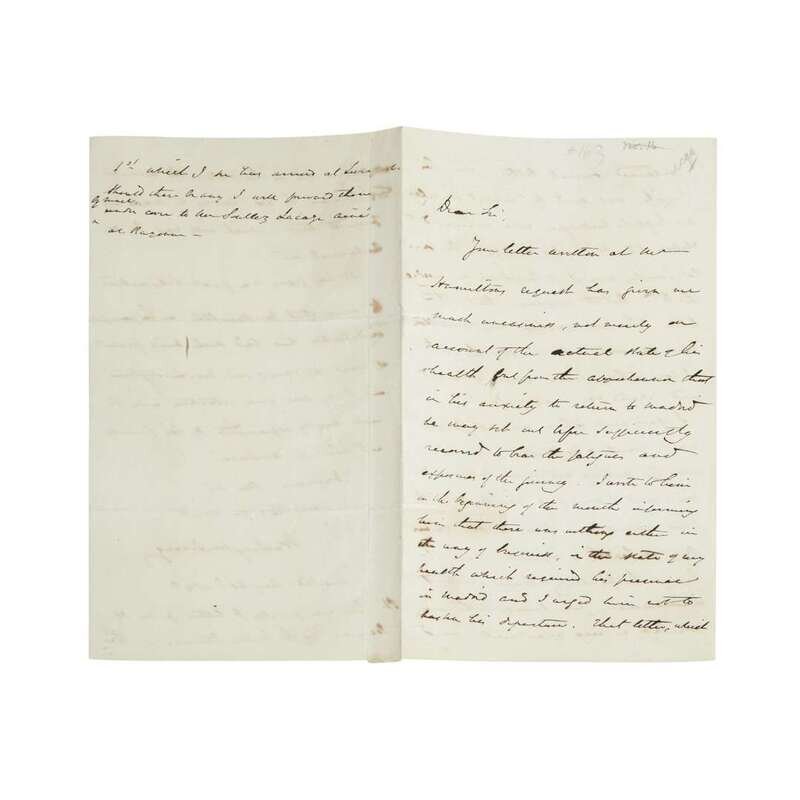 Dear Sir,
Your letter written at Mr
Hamiltons request has given me
much uneasiness, not merely on
account of the actual state of his
health but from the apprehension that
in his anxiety to return to Madrid
he may set out before sufficiently
recovered to bear the fatigues and
exposures of the journey. I wrote to him
in the beginning of the month informing
him that there was nothing either in
the way of business, or the state of my
health which required his presence
in Madrid and I urged him not to
hasten his departure. That letter, which
1st which I see has arrived at
should there be any I will forward them
by mail
under cover to
at Bayonne —